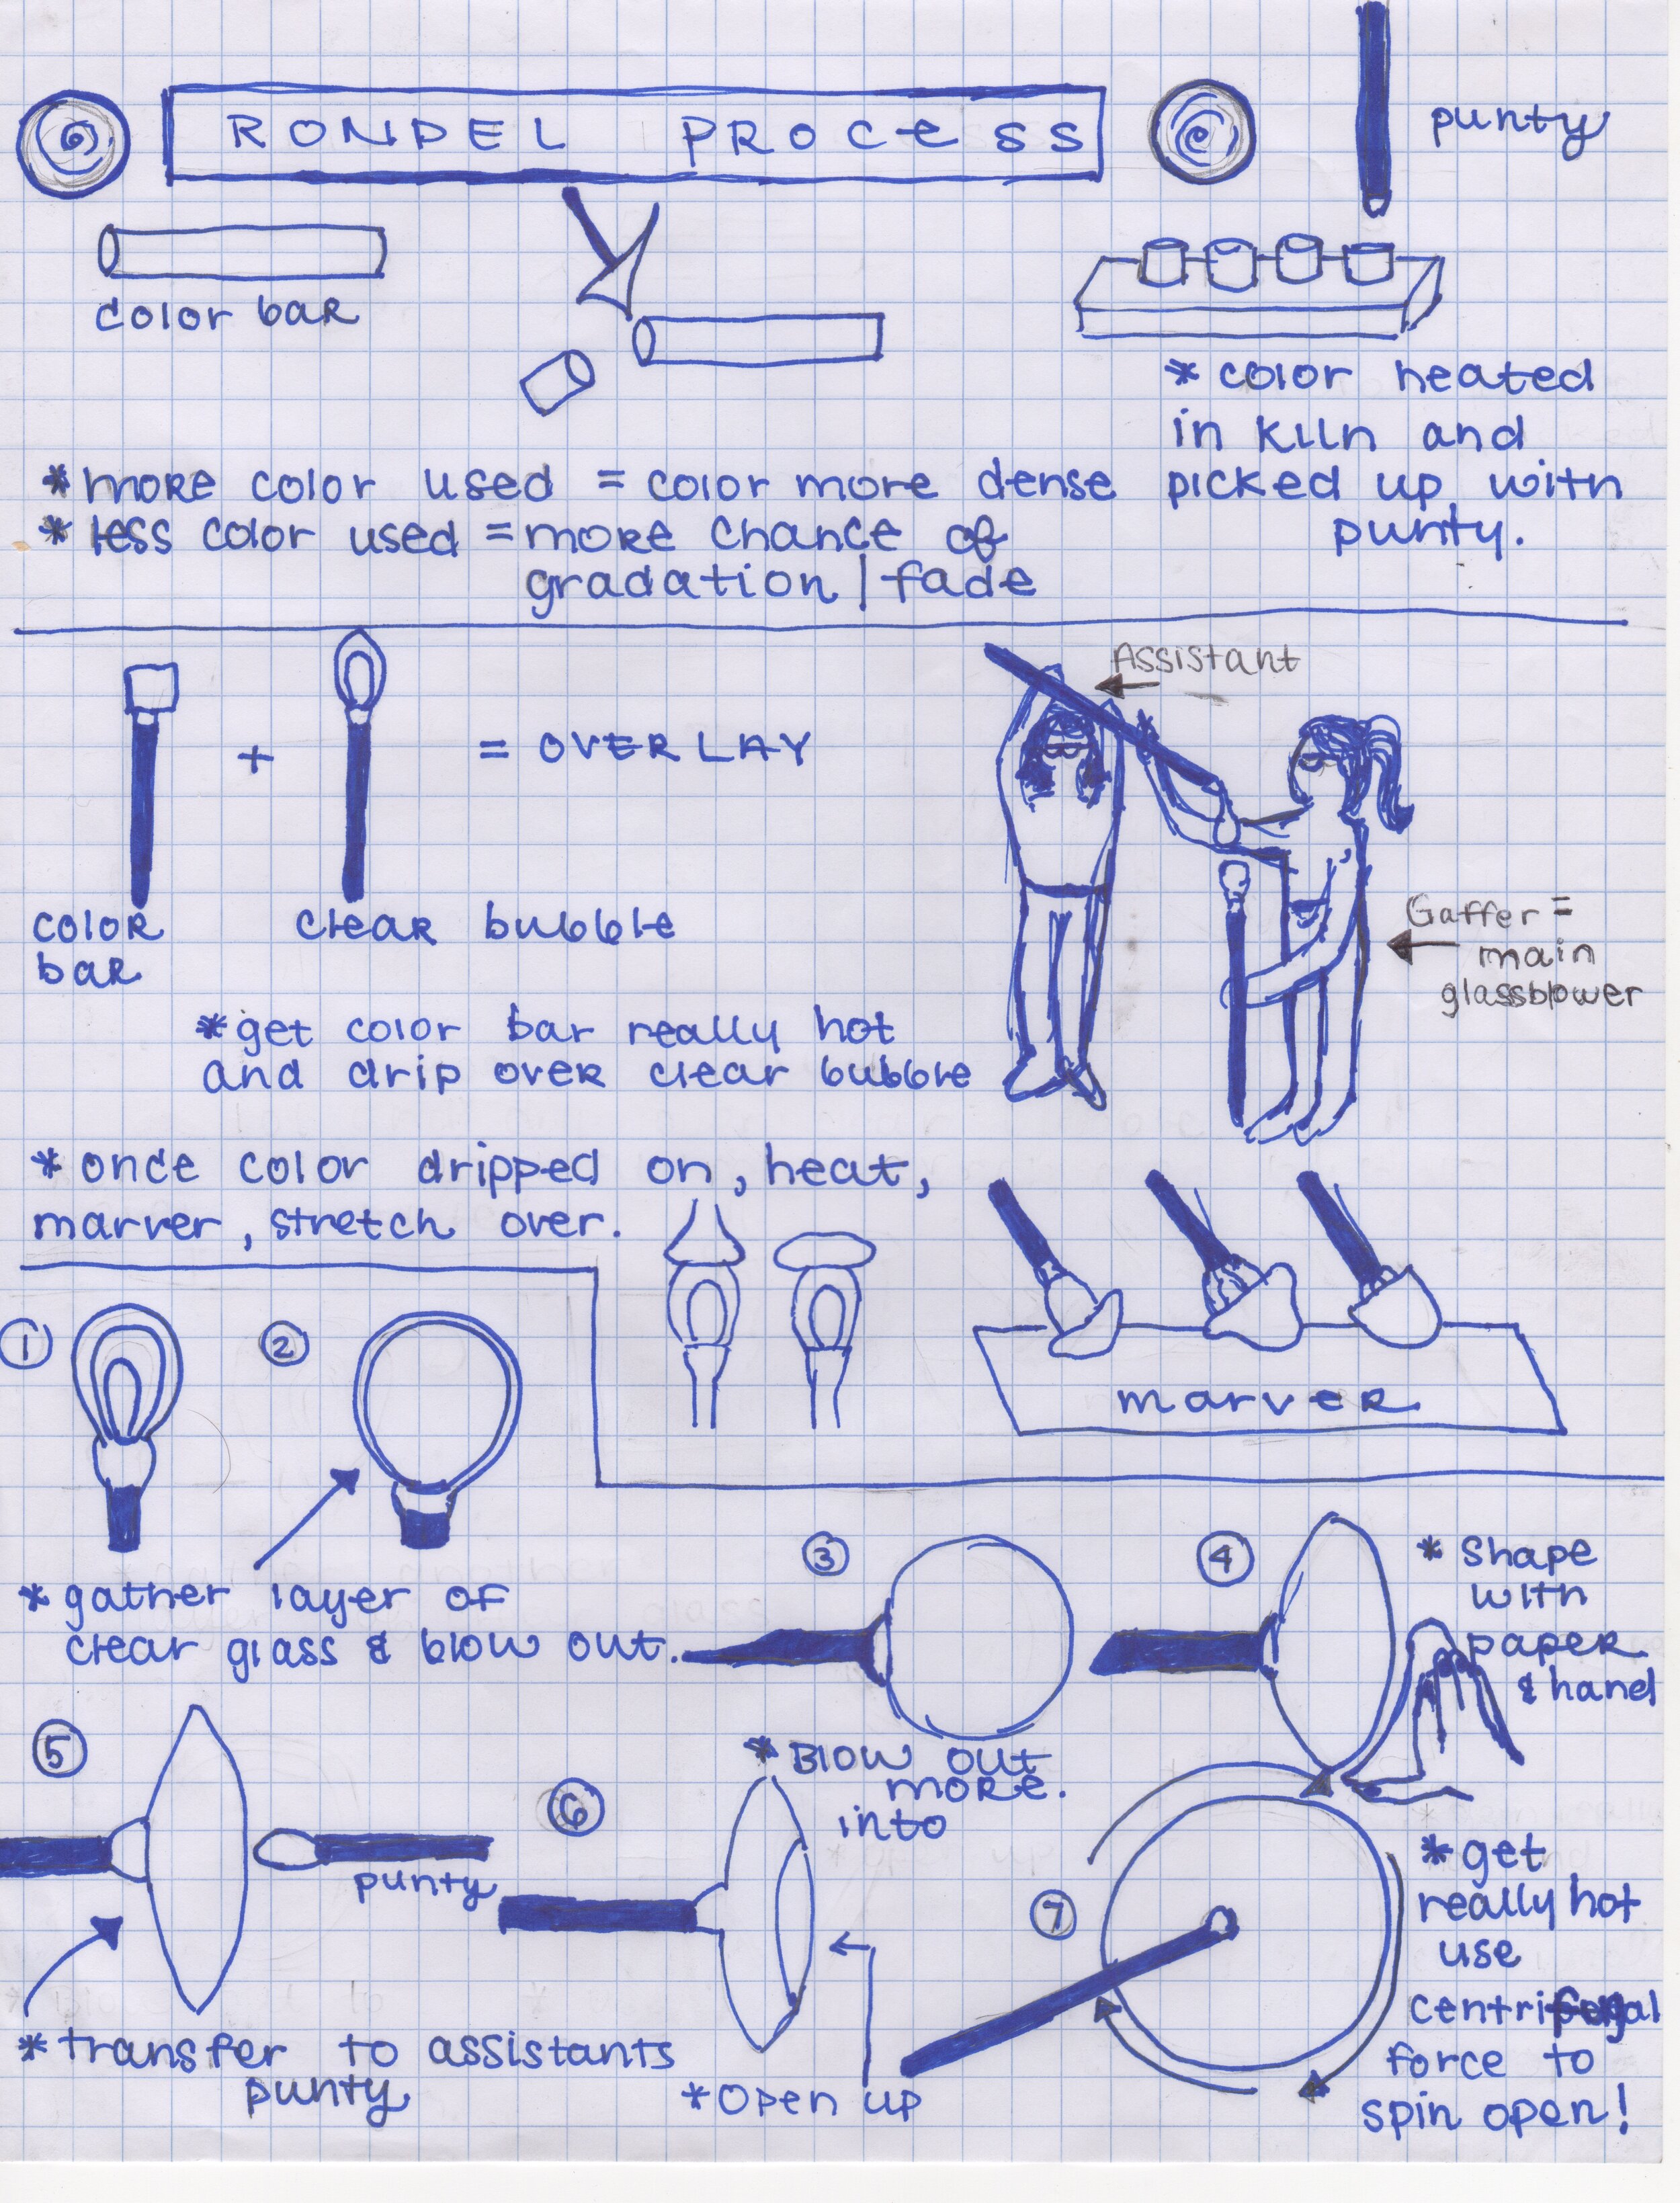 RONDEL PROCESS
punty
color bar
* color heated
in kiln and
picked up with
punty.
* more color used = color more dense
* less color used = more chance of
gradation | fade
Assistant
+
= OVERLAY
color
bar
clear bubble
Gaffer =
main
glassblower
* get color bar really hot
and drip over clear bubble
* once color dripped on, heat,
marver, stretch over.
marver
1
2
* gather layer of
clear glass & blow out.
3
* Blow out
more.
into
4
* Shape
with
paper
& hand
5
punty
* transfer to assistants
punty
6
* Open up
7
* get
really hot
use
centrifugal
force to
spin open!